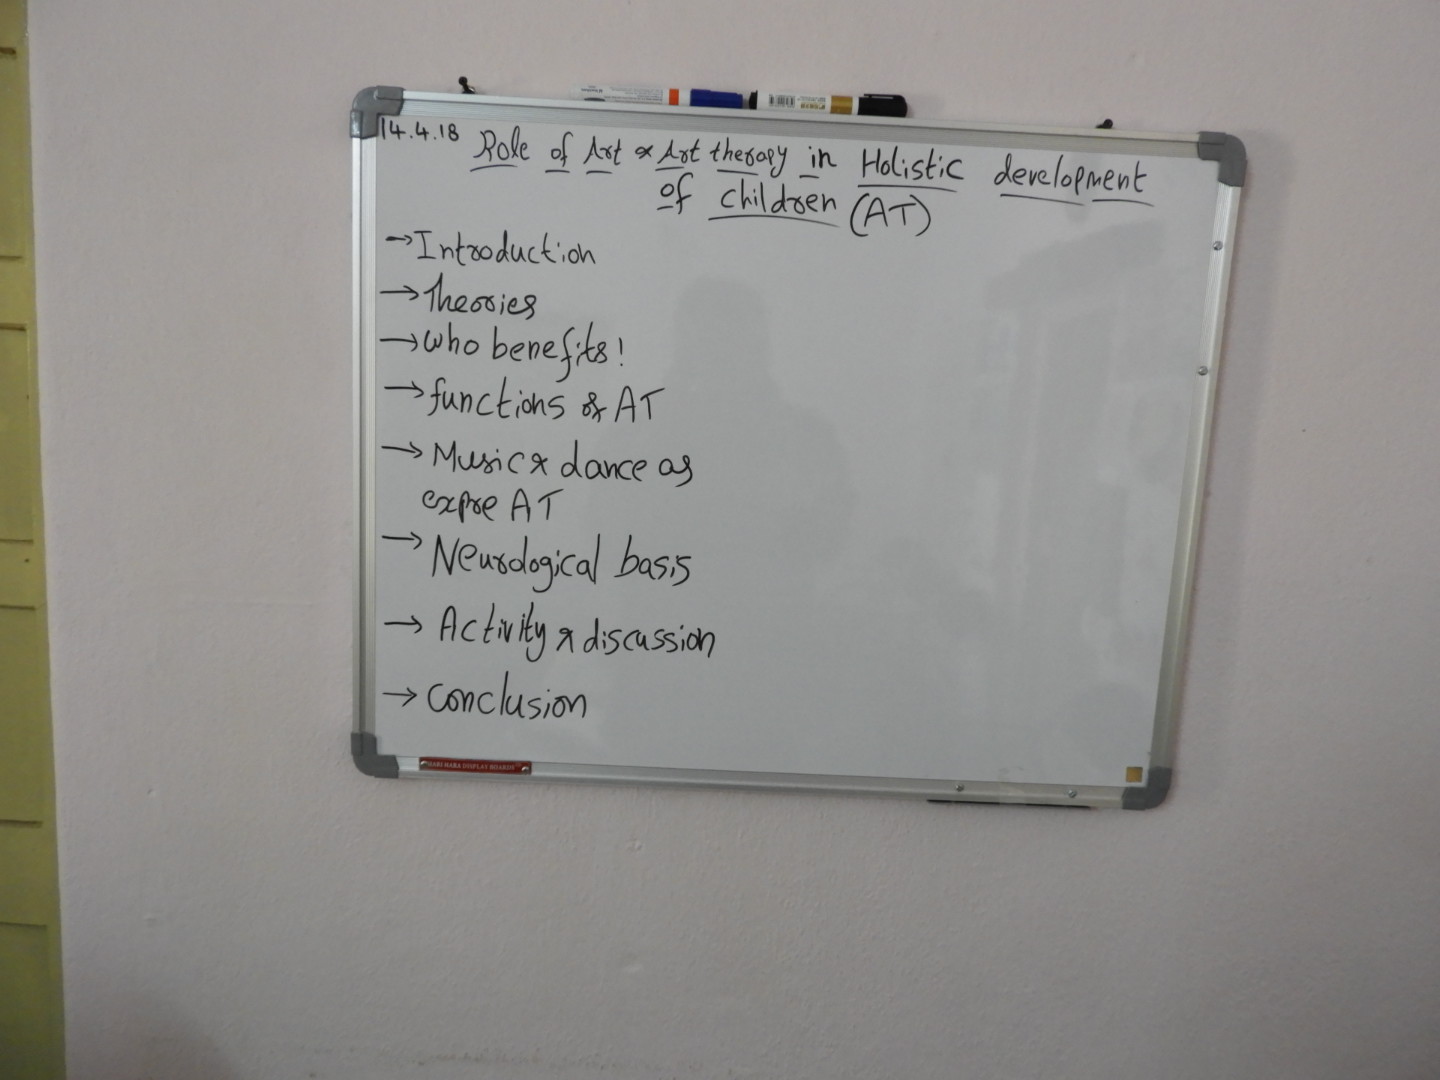 14.4.18 Role of Art & Art therapy in Holistic development
of children (AT)
→Introduction
→Theories
→Who benefits!
→functions of AT
→Music & dance as
expre AT
→Neurological basis
→Activity & discussion
→Conclusion
HARI HARA DISPLAY BOARDS